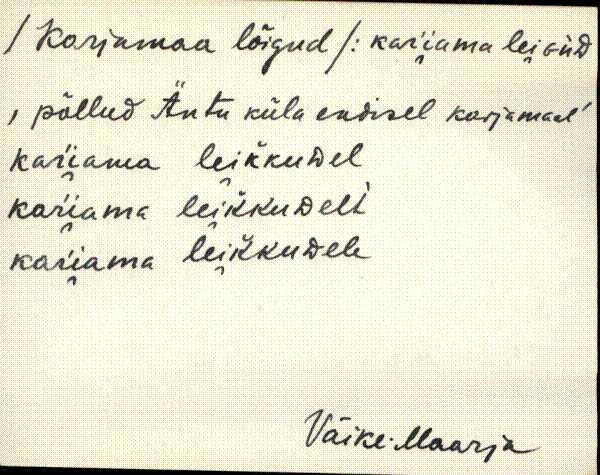 /Karjamaa lõigud/: kaŕi̯ama lei̯ɢùD
, põllud Äntu küla endisel karjamaal
kaŕi̯ama lei̯k̆kuDel
kaŕi̯ama lei̯k̆kuDelt̀
kaŕi̯ama lei̯k̆kuDele
Väike-Maarja